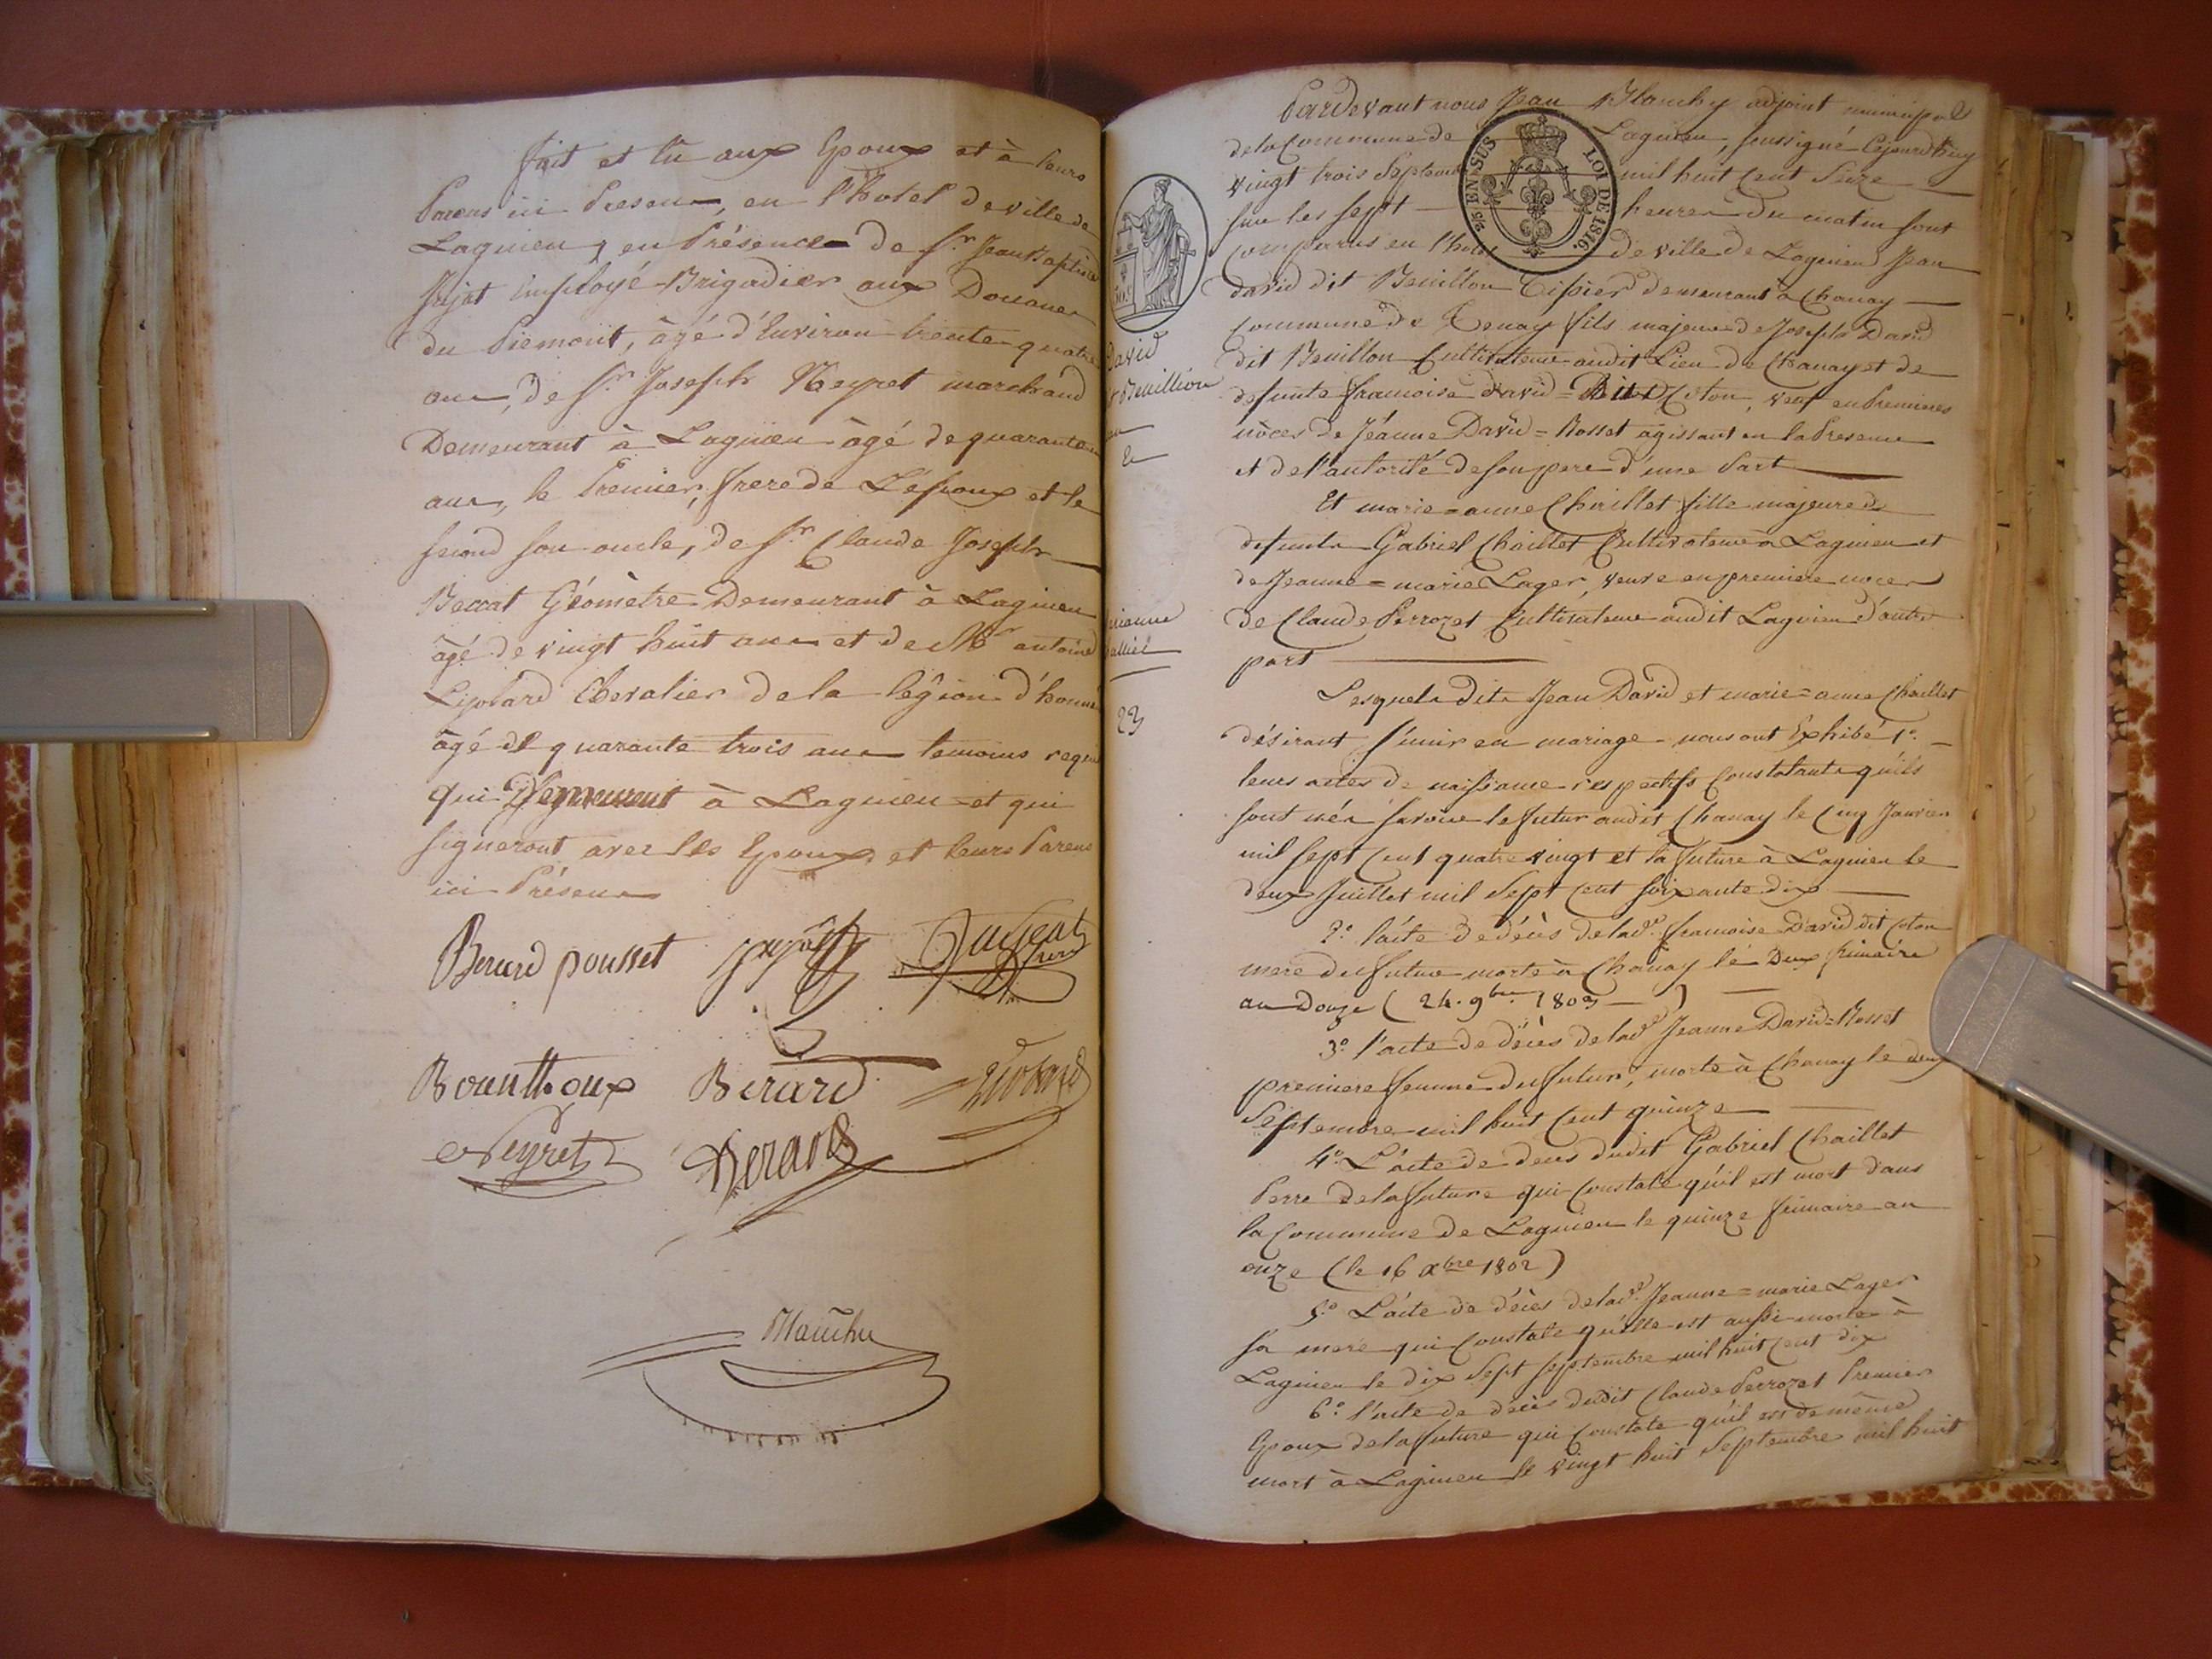 fait et lû aux Epoux et à leurs
Parens ici Presens, en l'hotel de ville de
Lagnieu, en Présence de Sr Jean Baptiste
employé Brigadier aux Douanes
du Piemont, âgé d'Environ trente quatre
ans, de Sr Joseph Neyret marchand
Demeurant à Lagnieu âgé de quarante
ans, le Premier, frere de L'époux et le
second son oncle, de Sr Claude Joseph
Beccat Géomètre Demeurant à Lagnieu
âgé de vingt huit ans et de Mr antoine
Chevalier de la légion d'honneur
âgé de quarante trois ans temoins requis
qui Demeurent à Lagnieu et qui
signeront avec les Epoux et leurs Parens
ici Présens
Berard pousset
frere
Bounthoux Berard
Neyret Berard
Blanchy
Pardevant nous Jean Blanchy adjoint municipal
de la Commune de Lagnieu, soussigné Cejourd'huy
vingt trois Septembre mil huit Cent Seize
sur les sept heures du matin sont
Comparus en l'hotel de ville de Lagnieu Jean
david dit Beuillon Tissier demeurant à Chanay
Commune de Tenay fils majeur de Joseph David
dit Beuillon Cultivateur audit Lieu de Chanay et de
defunte francoise David = Dit Coton, veuf en Premieres
nôces de Jéanne David = Rosset agissant en la Presence
et de l'autorité de son pere d'une Part
Et marie = anne Chaillet fille majeure de
defunts Gabriel Chaillet Cultivateur à Lagnieu et
de Jeanne = marie Lager, veuve en premiere noces
de Claude Perrozet Cultivateur audit Lagnieu d'autre
part
Lesquels dits Jean David et marie = anne Chaillet
désirant s'unir en mariage nous ont Exhibé 1°.
leurs actes de naissance respectifs Constatants qu'ils
sont nés savoir le futur audit Chanay le Cinq Janvier
mil sept Cent quatre vingt et la future à Lagnieu le
deux Juillet mil Sept Cent soixante dix
2°. l'acte de décès de lad. francoise David dit Coton
mere du futur morte à Chanay le Deux frimaire
an Douze ( 24. 9bre 1803 )
3°. l'acte de décès de lad. Jeanne David = Rosset
premiere femme du futur, morte à Chanay le deux
Septembre mil huit Cent quinze
4°. L'acte de deces dudit Gabriel Chaillet
Perre de la future qui Constate qu'il est mort dans
la Commune de Lagnieu le quinze frimaire an
onze (le 16 xbre 1802)
5°. L'acte de décès de lad. Jeanne = marie Lager
sa mere qui Constate qu'elle est aussi morte à
Lagnieu le dix Sept septembre mil huit Cent dix
6°. l'acte de décès dudit Claude Perrozet Premier
Epoux de la future qui Constate qu'il est de même
mort à Lagnieu le vingt huit Septembre mil huit
25c EN SUS
LOI DE 1816.
David
Beuillion
&
23